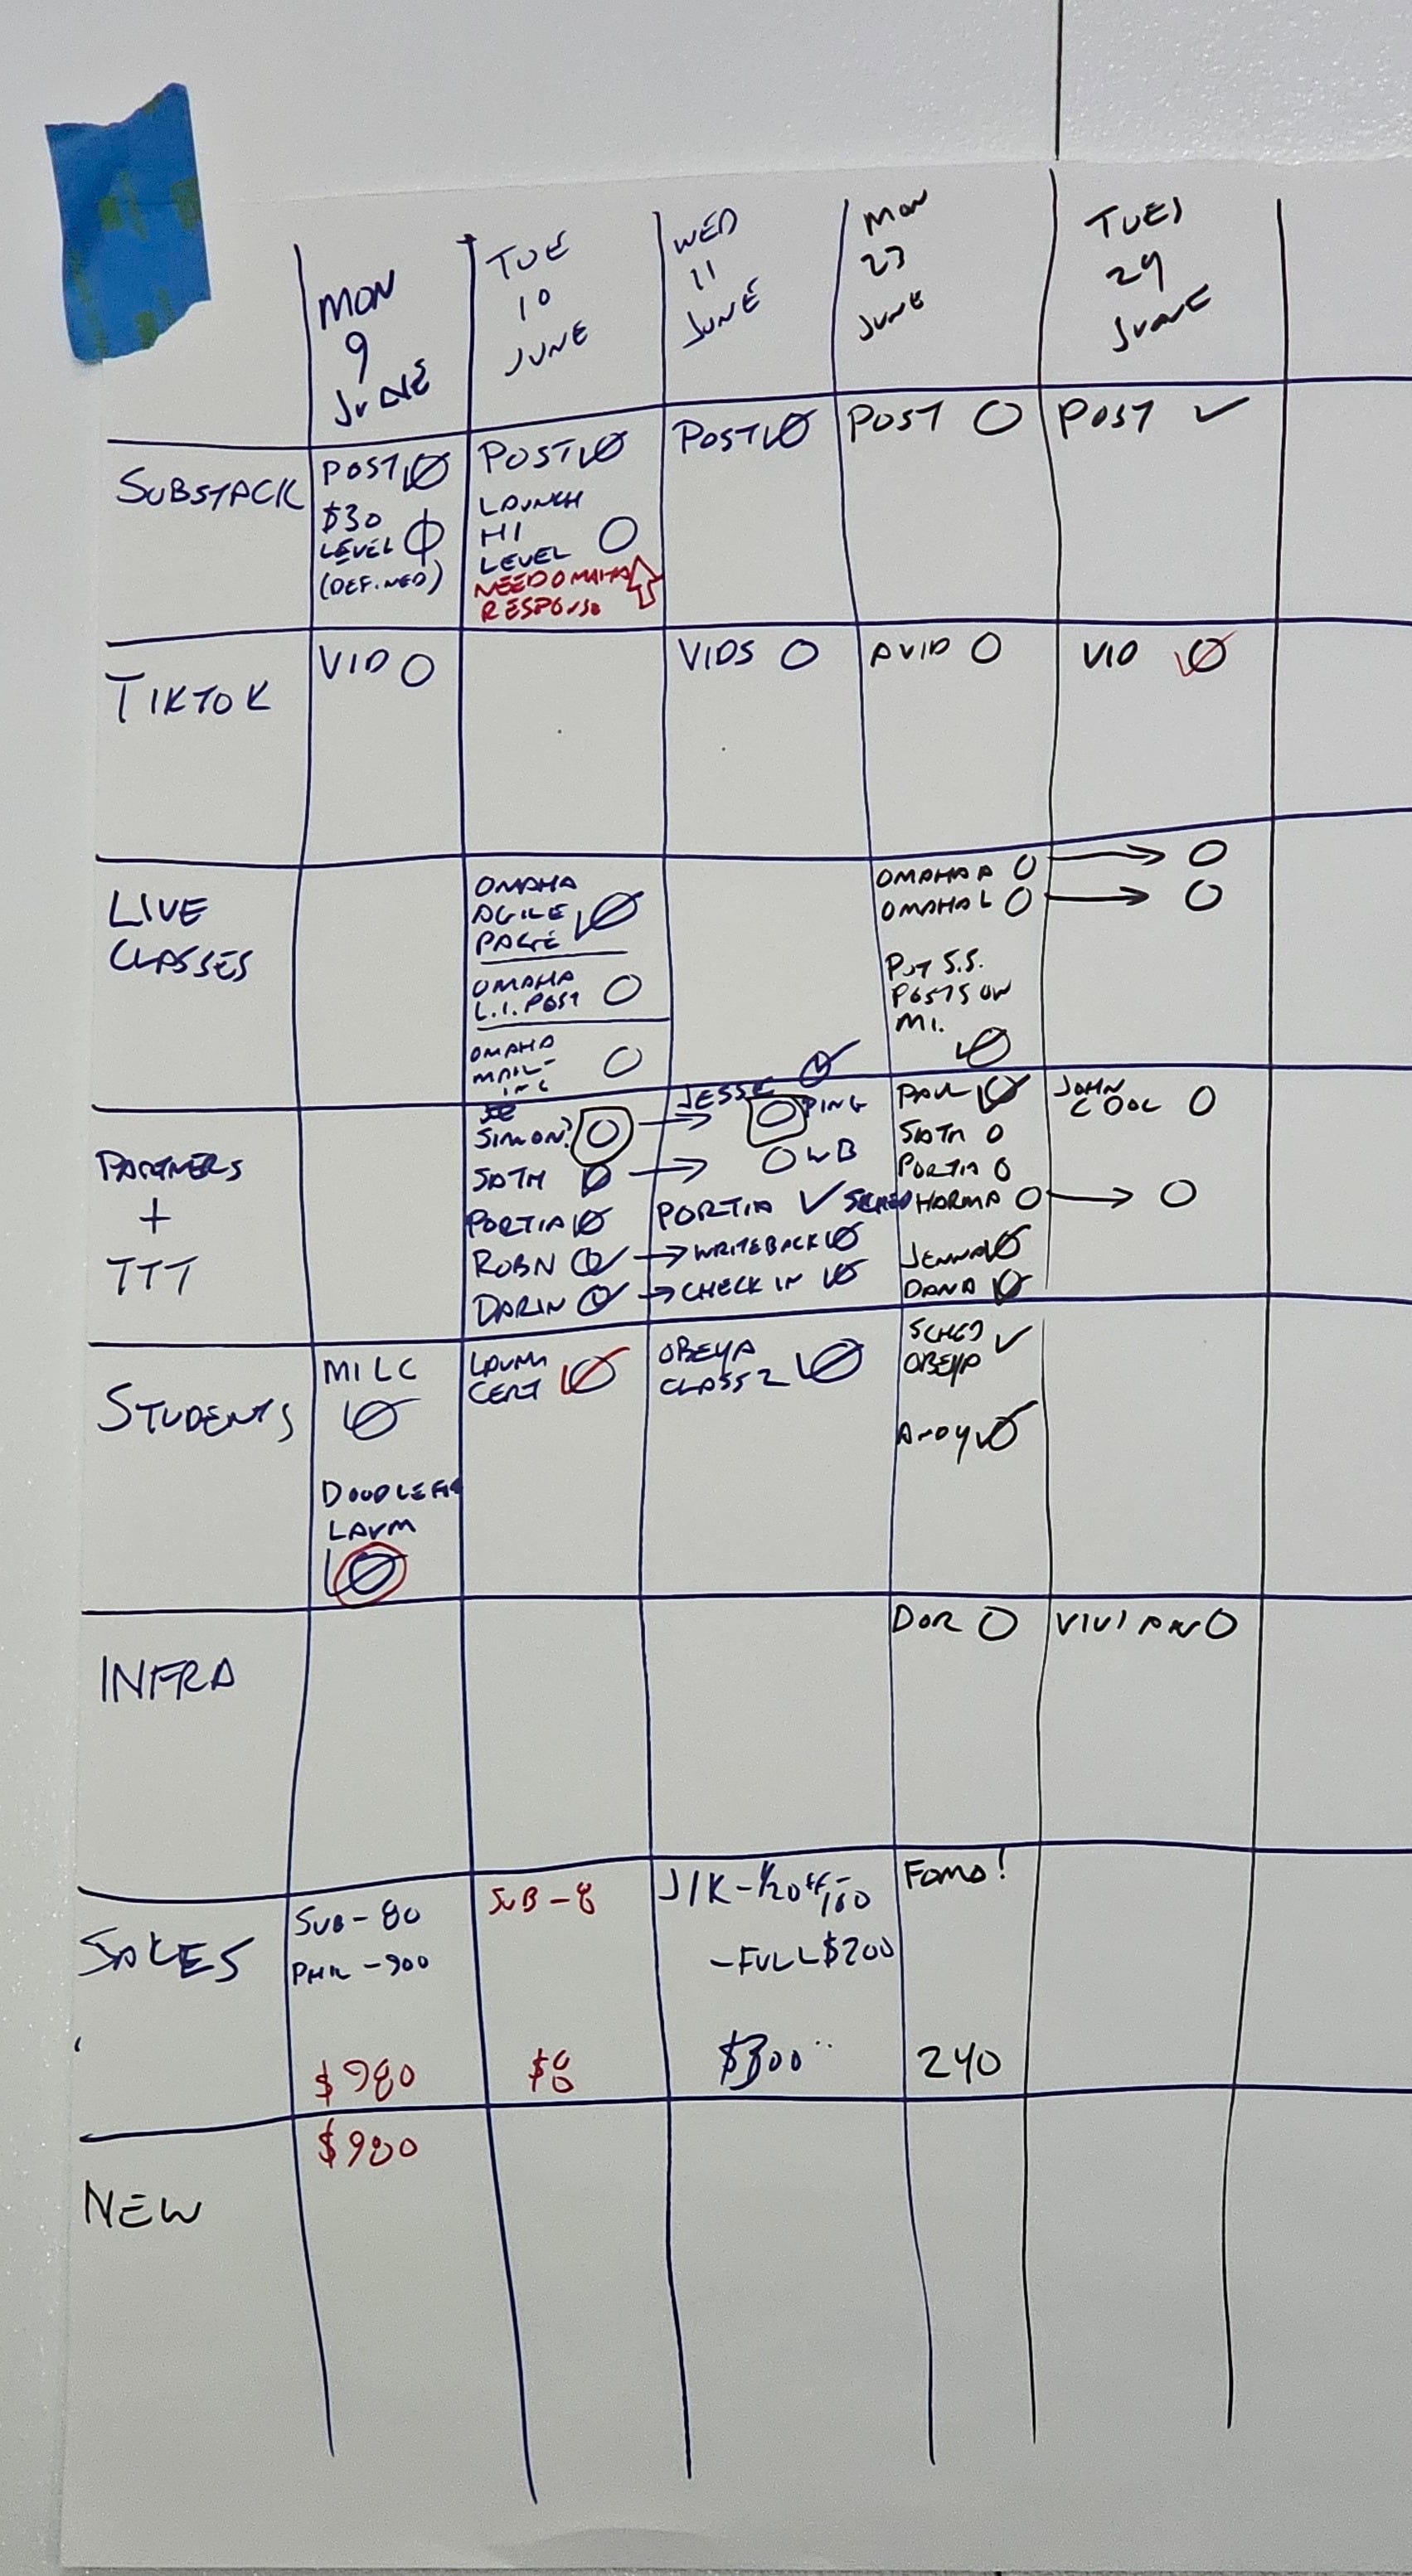 MON
9
JUNE
TUE
10
JUNE
WED
11
JUNE
MON
23
JUNE
TUES
24
JUNE
SUBSTACK
POST
$30
LEVEL
(DEFINED)
POST
LAUNCH
HI
LEVEL
NEED OMAHA
RESPONSE
POST
POST
POST
TIKTOK
VID
VIDS
A VID
VID
LIVE
CLASSES
OMAHA
AGILE
PAGE
OMAHA
L.I. POST
OMAHA
MAIL-
ING
OMAHA A
OMAHA L
PUT S.S.
POSTS ON
M.I.
PARTNERS
+
TTT
SIMON?
SATM
PORTIA
ROBN
DARIN
JESSE
PING
WB
PORTIA SCHED
WRITEBACK
CHECK IN
PAUL
SATM
PORTIA
HARMA
JENNA
DANA
JOHN
COOL
STUDENTS
MILC
DOODLE FOR
LAVM
LAVM
CERT
OBEYA
CLASS 2
SCHED
OBEYA
ANDY
INFRA
DOR
VIVIAN
SALES
SUB - 80
PHIL - 900
$980
SUB - 8
$8
J/K - 1/20FF - 100
- FULL $200
$300
FOMO!
240
NEW
$980